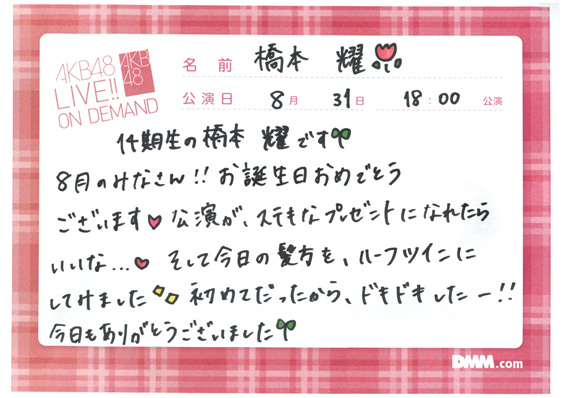 AKB48
LIVE!!
ON DEMAND
AKB
48
名前 橋本 耀
公演日 8月 31日 18:00 公演
14期生の橋本 耀です
8月のみなさん!! お誕生日おめでとう
ございます♥ 公演が、ステキなプレゼントになれたら
いいな...♥ そして今日の髪方を、ループツインに
してみました 初めてだったから、ドキドキしたー!!
今日もありがとうございました
DMM.com